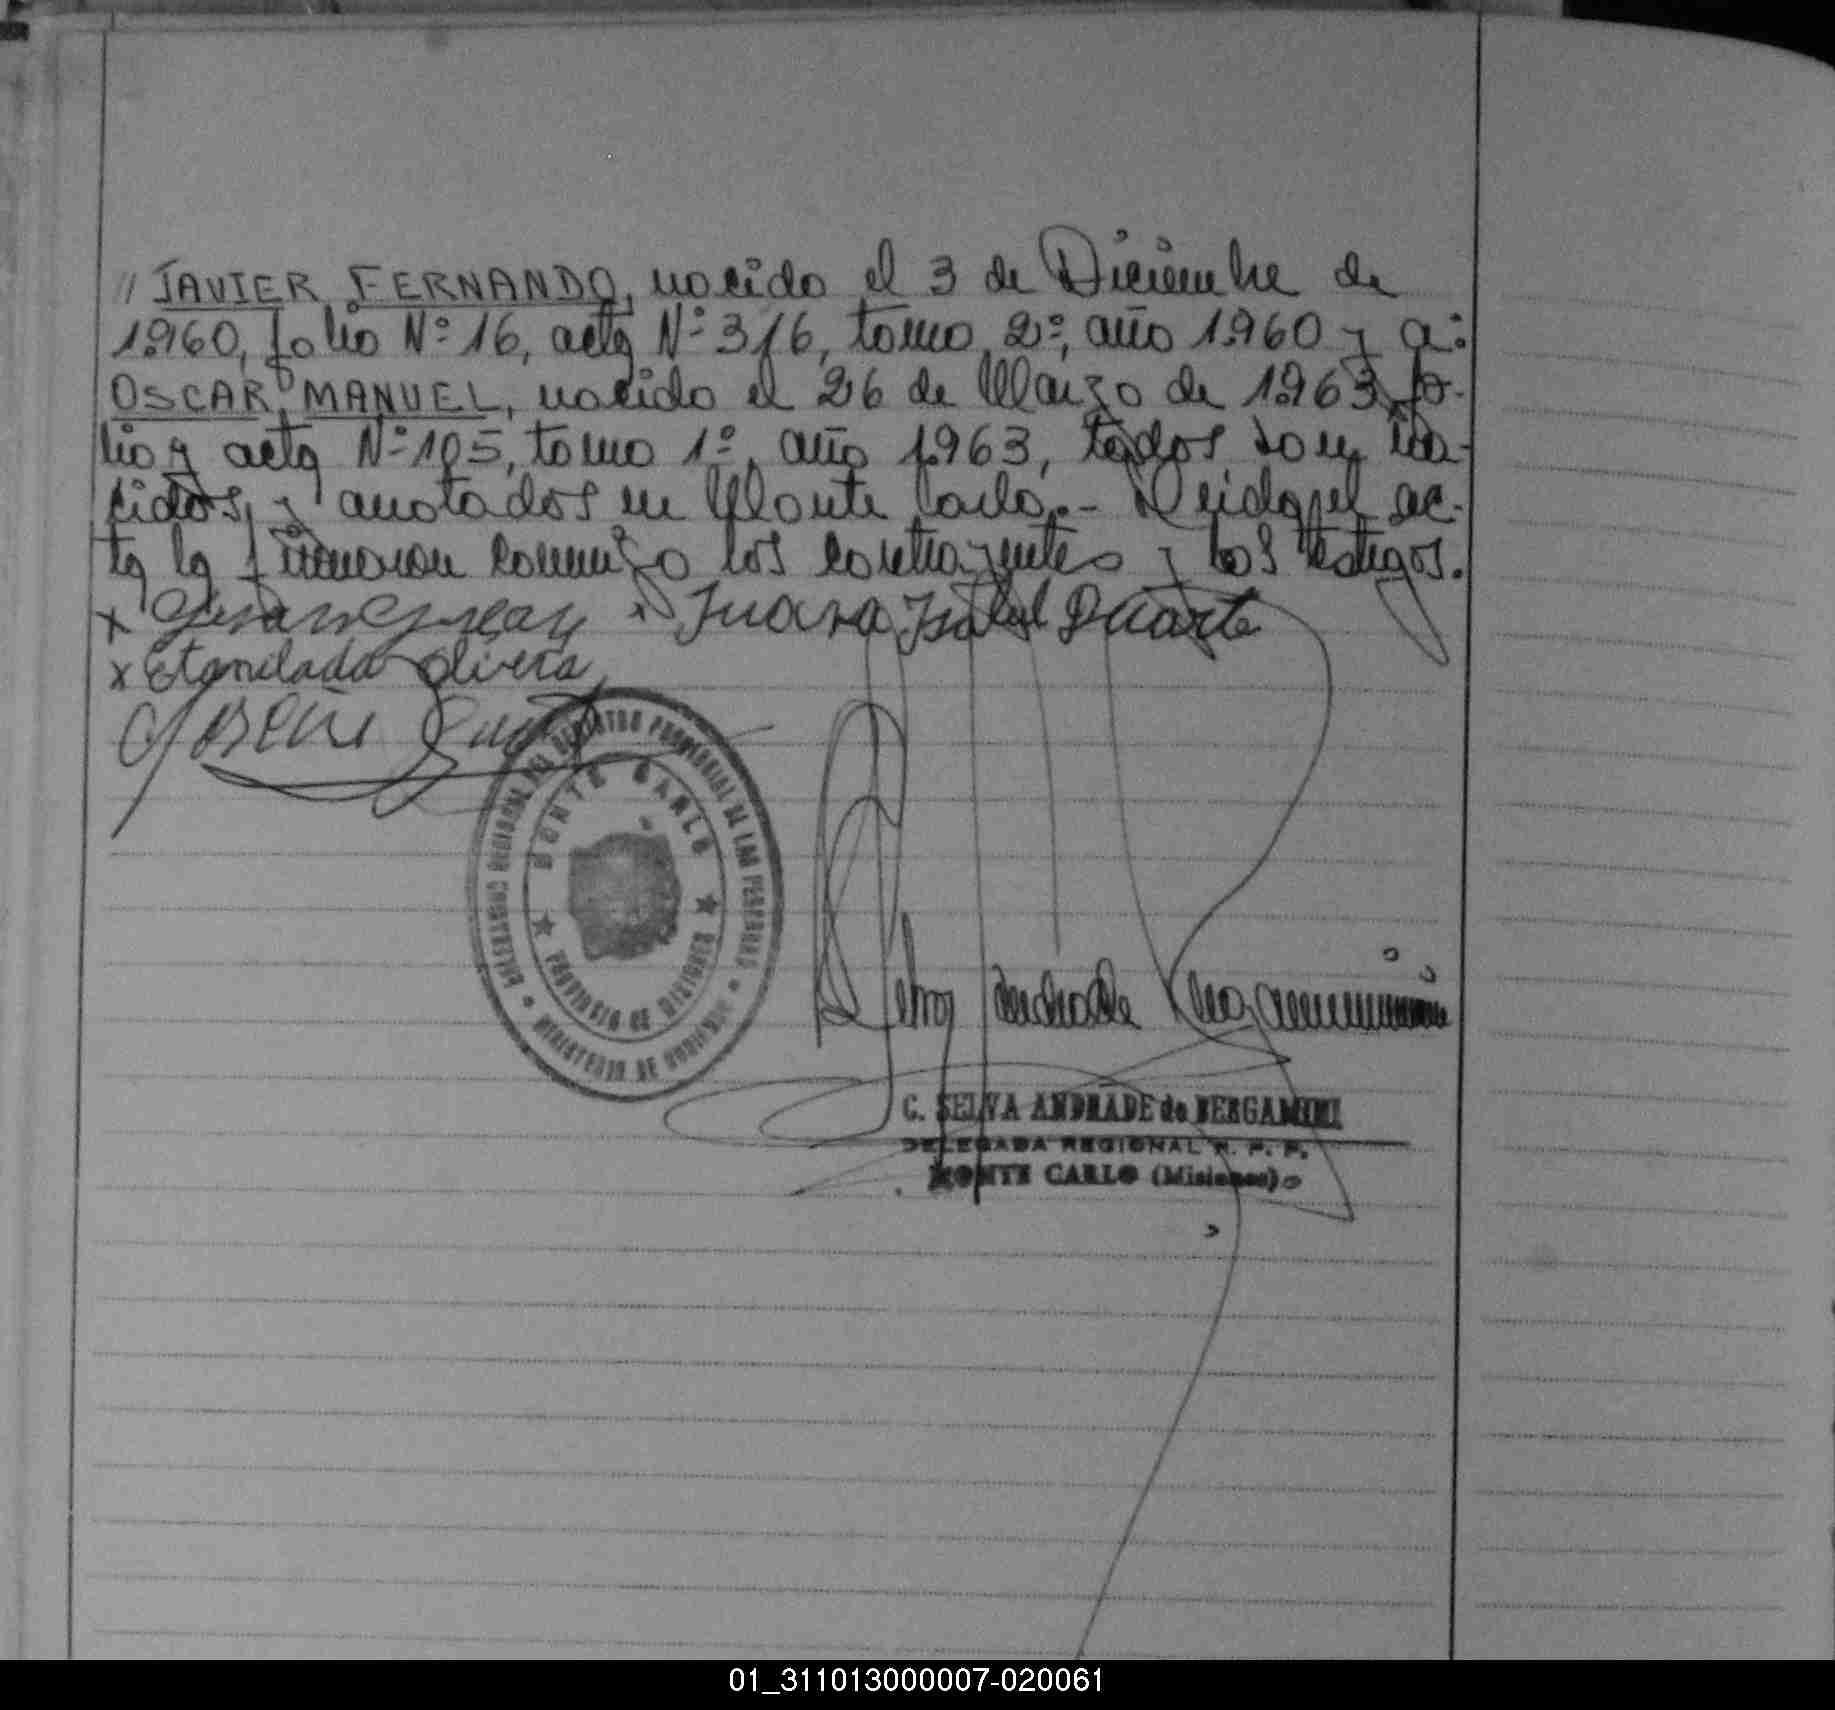 // JAVIER FERNANDO, nacido el 3 de Diciembre de
1.960, folio Nº 16, acta Nº 316, tomo 2º, año 1.960 y a:
OSCAR MANUEL, nacido el 26 de Marzo de 1.963, fo-
lio y acta Nº 105, tomo 1º, año 1.963, todos son na-
cidos, y anotados en Monte Carlo.- Leida el ac-
ta la firmaron conmigo los contrayentes y los testigos.
x Juana Isabel Duarte
x Etanilada Olivera
DIRECCION REGISTRO PROVINCIAL DE LAS PERSONAS
MONTE CARLO
★ PROVINCIA DE MISIONES ★
MINISTERIO DE GOBIERNO
Selva Andrade
C. SELVA ANDRADE de BERGAMINI
DELEGADA REGIONAL R. P. P.
MONTE CARLO (Misiones)
01_311013000007-020061